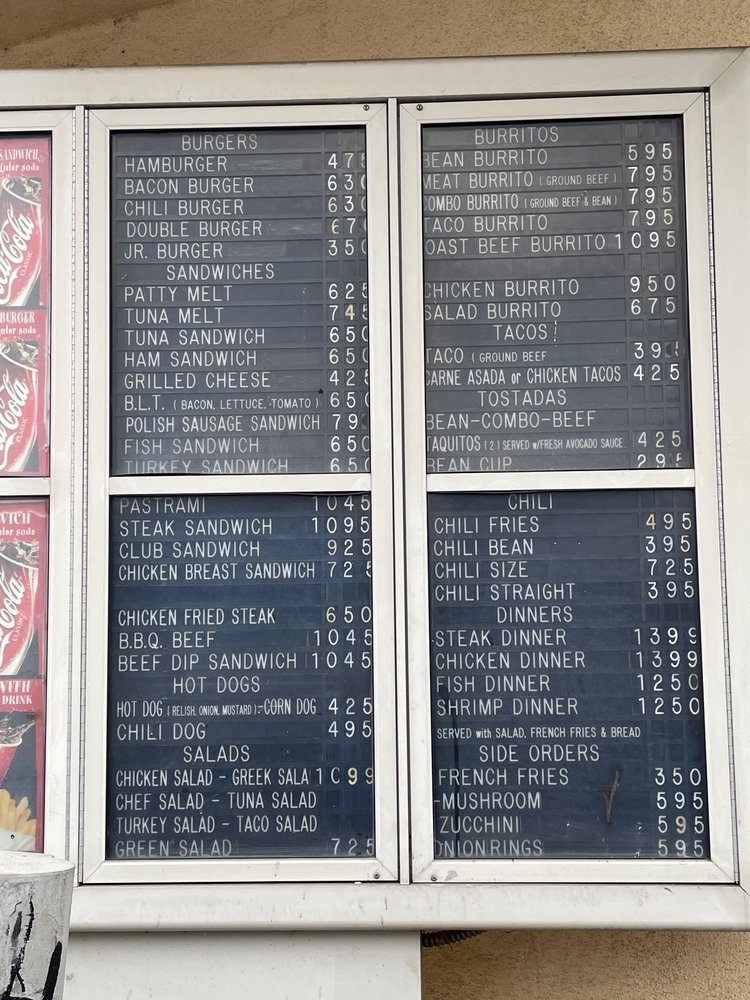 SANDWICH
gular soda
Coca-Cola
CLASSIC
BURGER
ular soda
Coca-Cola
CLASSIC
WICH
ular soda
Coca-Cola
CLASSIC
WITH
DRINK
BURGERS
HAMBURGER 475
BACON BURGER 630
CHILI BURGER 630
DOUBLE BURGER 67
JR. BURGER 350
SANDWICHES
PATTY MELT 625
TUNA MELT 745
TUNA SANDWICH 650
HAM SANDWICH 650
GRILLED CHEESE 425
B.L.T. (BACON, LETTUCE, TOMATO) 650
POLISH SAUSAGE SANDWICH 79
FISH SANDWICH 650
TURKEY SANDWICH 650
PASTRAMI 1045
STEAK SANDWICH 1095
CLUB SANDWICH 925
CHICKEN BREAST SANDWICH 725
CHICKEN FRIED STEAK 650
B.B.Q. BEEF 1045
BEEF DIP SANDWICH 1045
HOT DOGS
HOT DOG (RELISH, ONION, MUSTARD)-CORN DOG 425
CHILI DOG 495
SALADS
CHICKEN SALAD - GREEK SALA 1099
CHEF SALAD - TUNA SALAD
TURKEY SALAD - TACO SALAD
GREEN SALAD 725
BURRITOS
BEAN BURRITO 595
MEAT BURRITO (GROUND BEEF) 795
COMBO BURRITO (GROUND BEEF & BEAN) 795
TACO BURRITO 795
OAST BEEF BURRITO 1095
CHICKEN BURRITO 950
SALAD BURRITO 675
TACOS
TACO (GROUND BEEF 395
CARNE ASADA or CHICKEN TACOS 425
TOSTADAS
BEAN-COMBO-BEEF
TAQUITOS (2) SERVED w/FRESH AVOCADO SAUCE 425
BEAN CUP 295
CHILI
CHILI FRIES 495
CHILI BEAN 395
CHILI SIZE 725
CHILI STRAIGHT 395
DINNERS
STEAK DINNER 1399
CHICKEN DINNER 1399
FISH DINNER 1250
SHRIMP DINNER 1250
SERVED with SALAD, FRENCH FRIES & BREAD
SIDE ORDERS
FRENCH FRIES 350
-MUSHROOM 595
ZUCCHINI 595
ONION RINGS 595